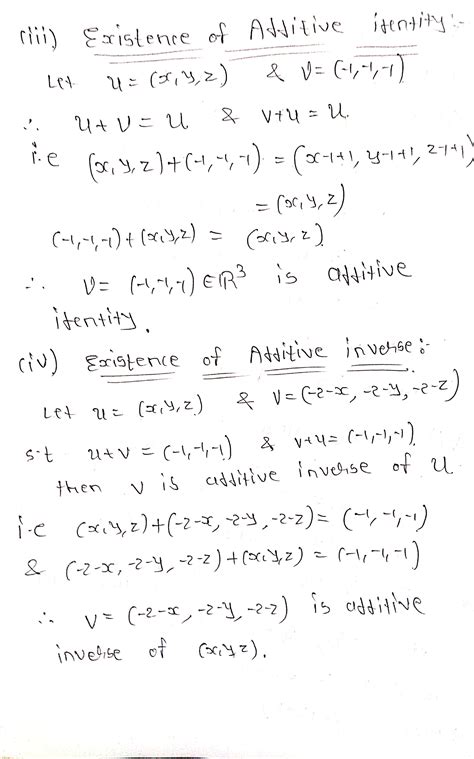 (iii) Existence of Additive itentity:-
Let u = (x,y,z) & V = (-1,-1,-1)
∴ u + v = u & v+u = u
i.e (x,y,z)+(-1,-1,-1) = (x-1+1, y-1+1, z-1+1)
= (x,y,z)
(-1,-1,-1)+(x,y,z) = (x,y,z)
∴ V = (-1,-1,-1) ∈ ℝ³ is additive
itentity.
(iv) Existence of Additive inverse:-
Let u = (x,y,z) & V=(-2-x, -2-y, -2-z)
s.t u+v = (-1,-1,-1) & v+u = (-1,-1,-1)
then v is additive inverse of u
i.e (x,y,z)+(-2-x, -2-y, -2-z) = (-1,-1,-1)
& (-2-x, -2-y, -2-z)+(x,y,z) = (-1,-1,-1)
∴ V = (-2-x, -2-y, -2-z) is additive
inverse of (x,y,z).